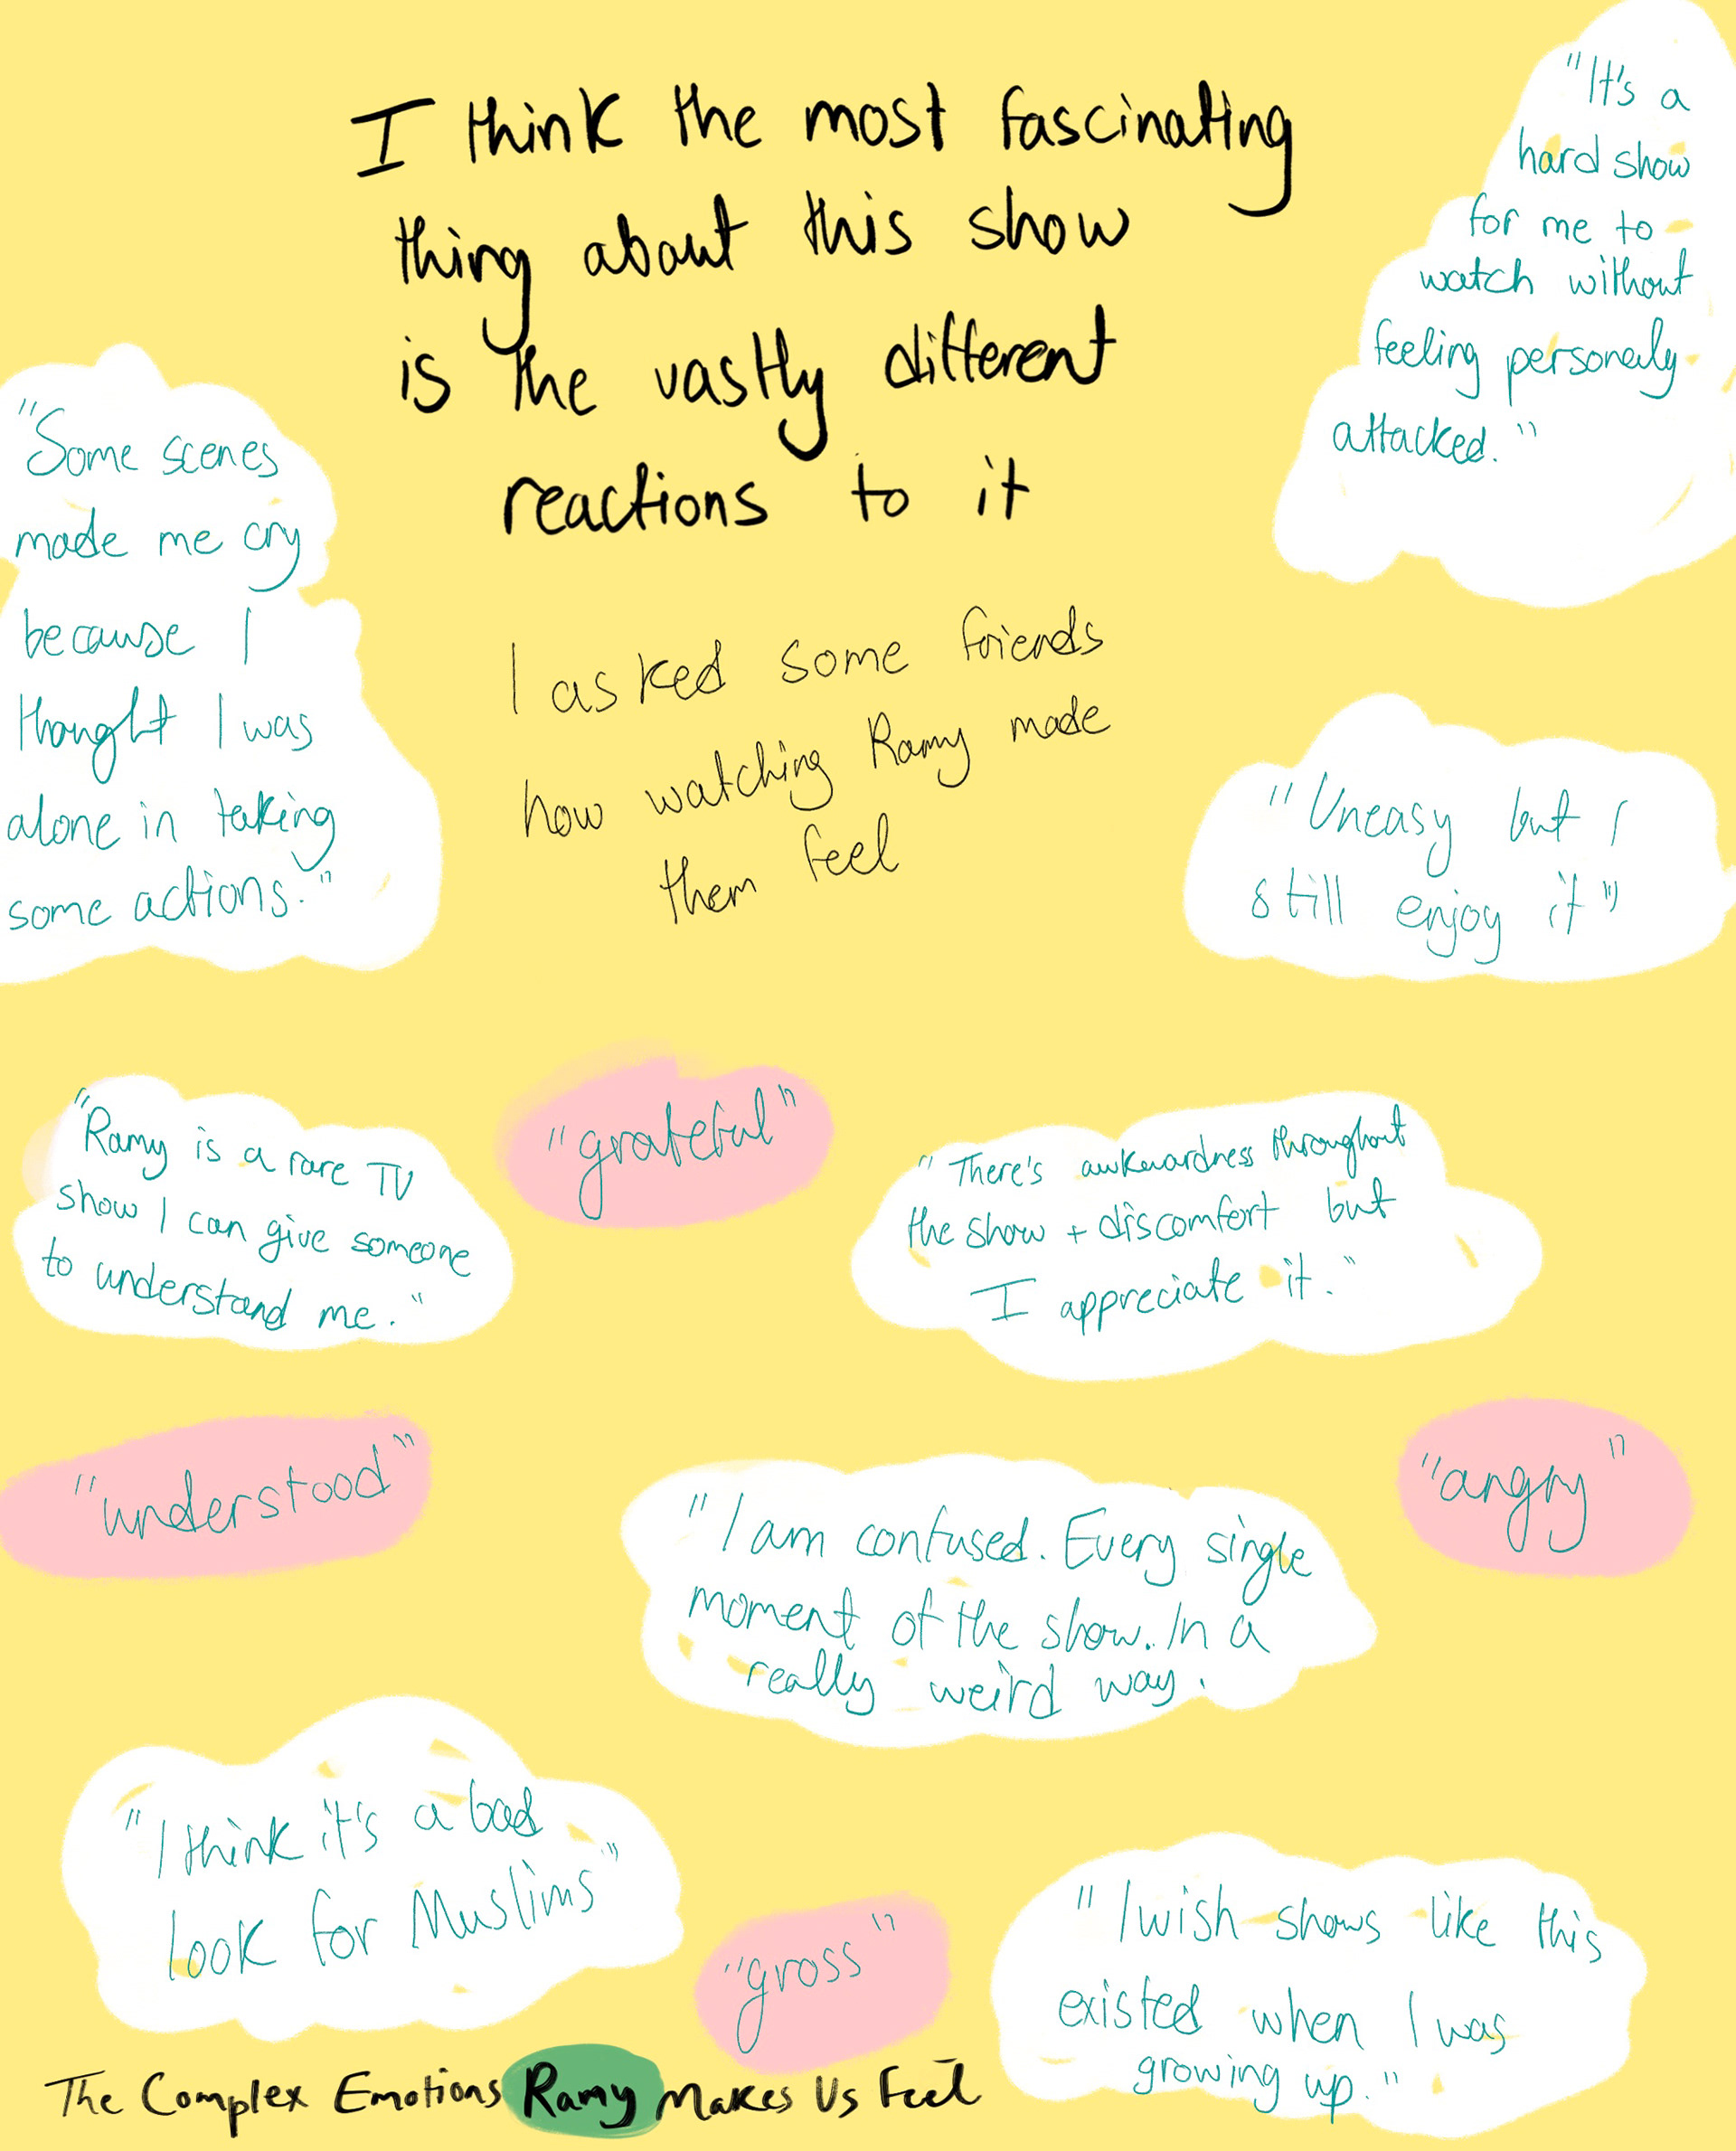 I think the most fascinating
thing about this show
is the vastly different
reactions to it
"It's a
hard show
for me to
watch without
feeling personally
attacked."
"Some scenes
made me cry
because I
thought I was
alone in taking
some actions."
I asked some friends
how watching Ramy made
them feel
"Uneasy but I
still enjoy it"
"Ramy is a rare TV
show I can give someone
to understand me."
"grateful"
"There's awkwardness throughout
the show + discomfort but
I appreciate it."
"understood"
"angry"
"I am confused. Every single
moment of the show. In a
really weird way.
"I think it's a bad
look for Muslims"
"gross"
"I wish shows like this
existed when I was
growing up."
The Complex Emotions Ramy Makes Us Feel